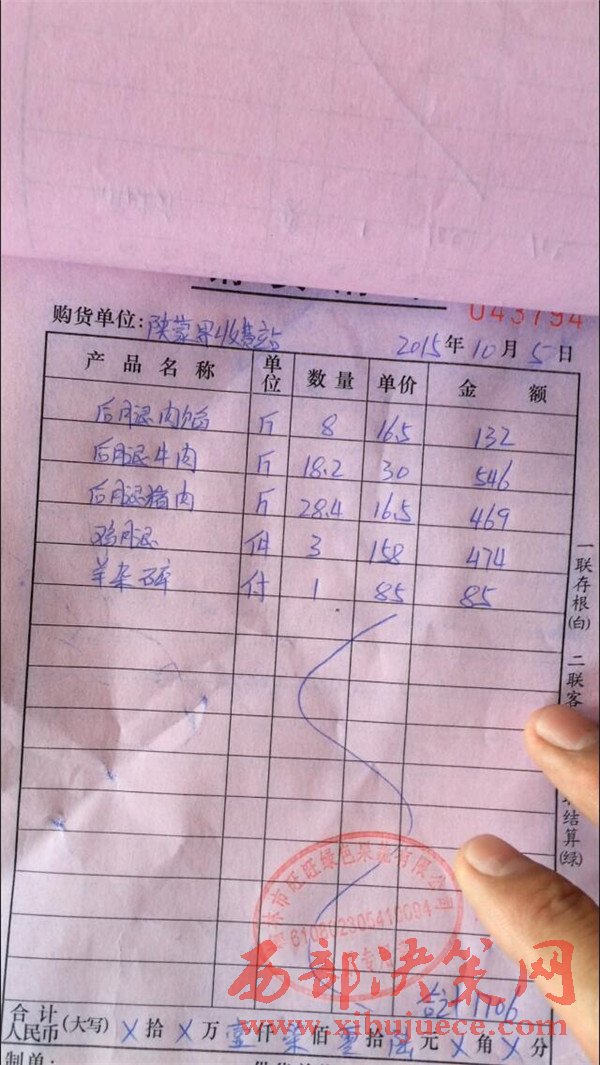 043794
购货单位: 陕蒙界收费站 2015年10月5日
产品名称 单位 数量 单价 金额
后腿肉馅 斤 8 16.5 132
后腿牛肉 斤 18.2 30 546
后腿猪肉 斤 28.4 16.5 469
鸡腿 件 3 158 474
羊杂碎 付 1 85 85
一联存根(白)
二联客
结算(绿)
市旺旺绿色果蔬有限公司
西部决策网
合计1706
www.xibujuece.com
合计人民币(大写) X拾X万壹仟柒佰零拾陆元X角X分
制单: